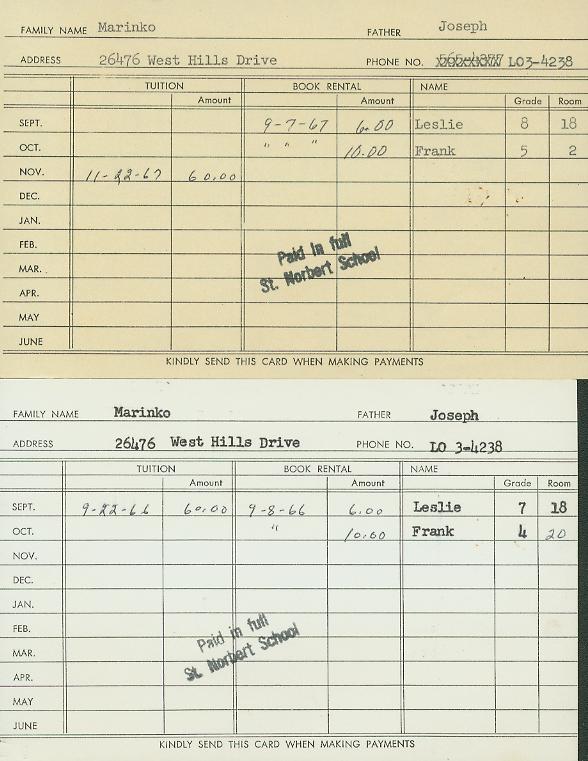 FAMILY NAME Marinko FATHER Joseph
ADDRESS 26476 West Hills Drive PHONE NO. LO3-4238
TUITION BOOK RENTAL NAME
Amount Amount Grade Room
SEPT. 9-7-67 6.00 Leslie 8 18
OCT. " " " 10.00 Frank 5 2
NOV. 11-22-67 60.00
DEC.
JAN.
FEB.
Paid in full
MAR.
St. Norbert School
APR.
MAY
JUNE
KINDLY SEND THIS CARD WHEN MAKING PAYMENTS
FAMILY NAME Marinko FATHER Joseph
ADDRESS 26476 West Hills Drive PHONE NO. LO 3-4238
TUITION BOOK RENTAL NAME
Amount Amount Grade Room
SEPT. 9-22-66 60.00 9-8-66 6.00 Leslie 7 18
OCT. " 10.00 Frank 4 20
NOV.
DEC.
JAN.
FEB.
Paid in full
MAR.
St. Norbert School
APR.
MAY
JUNE
KINDLY SEND THIS CARD WHEN MAKING PAYMENTS